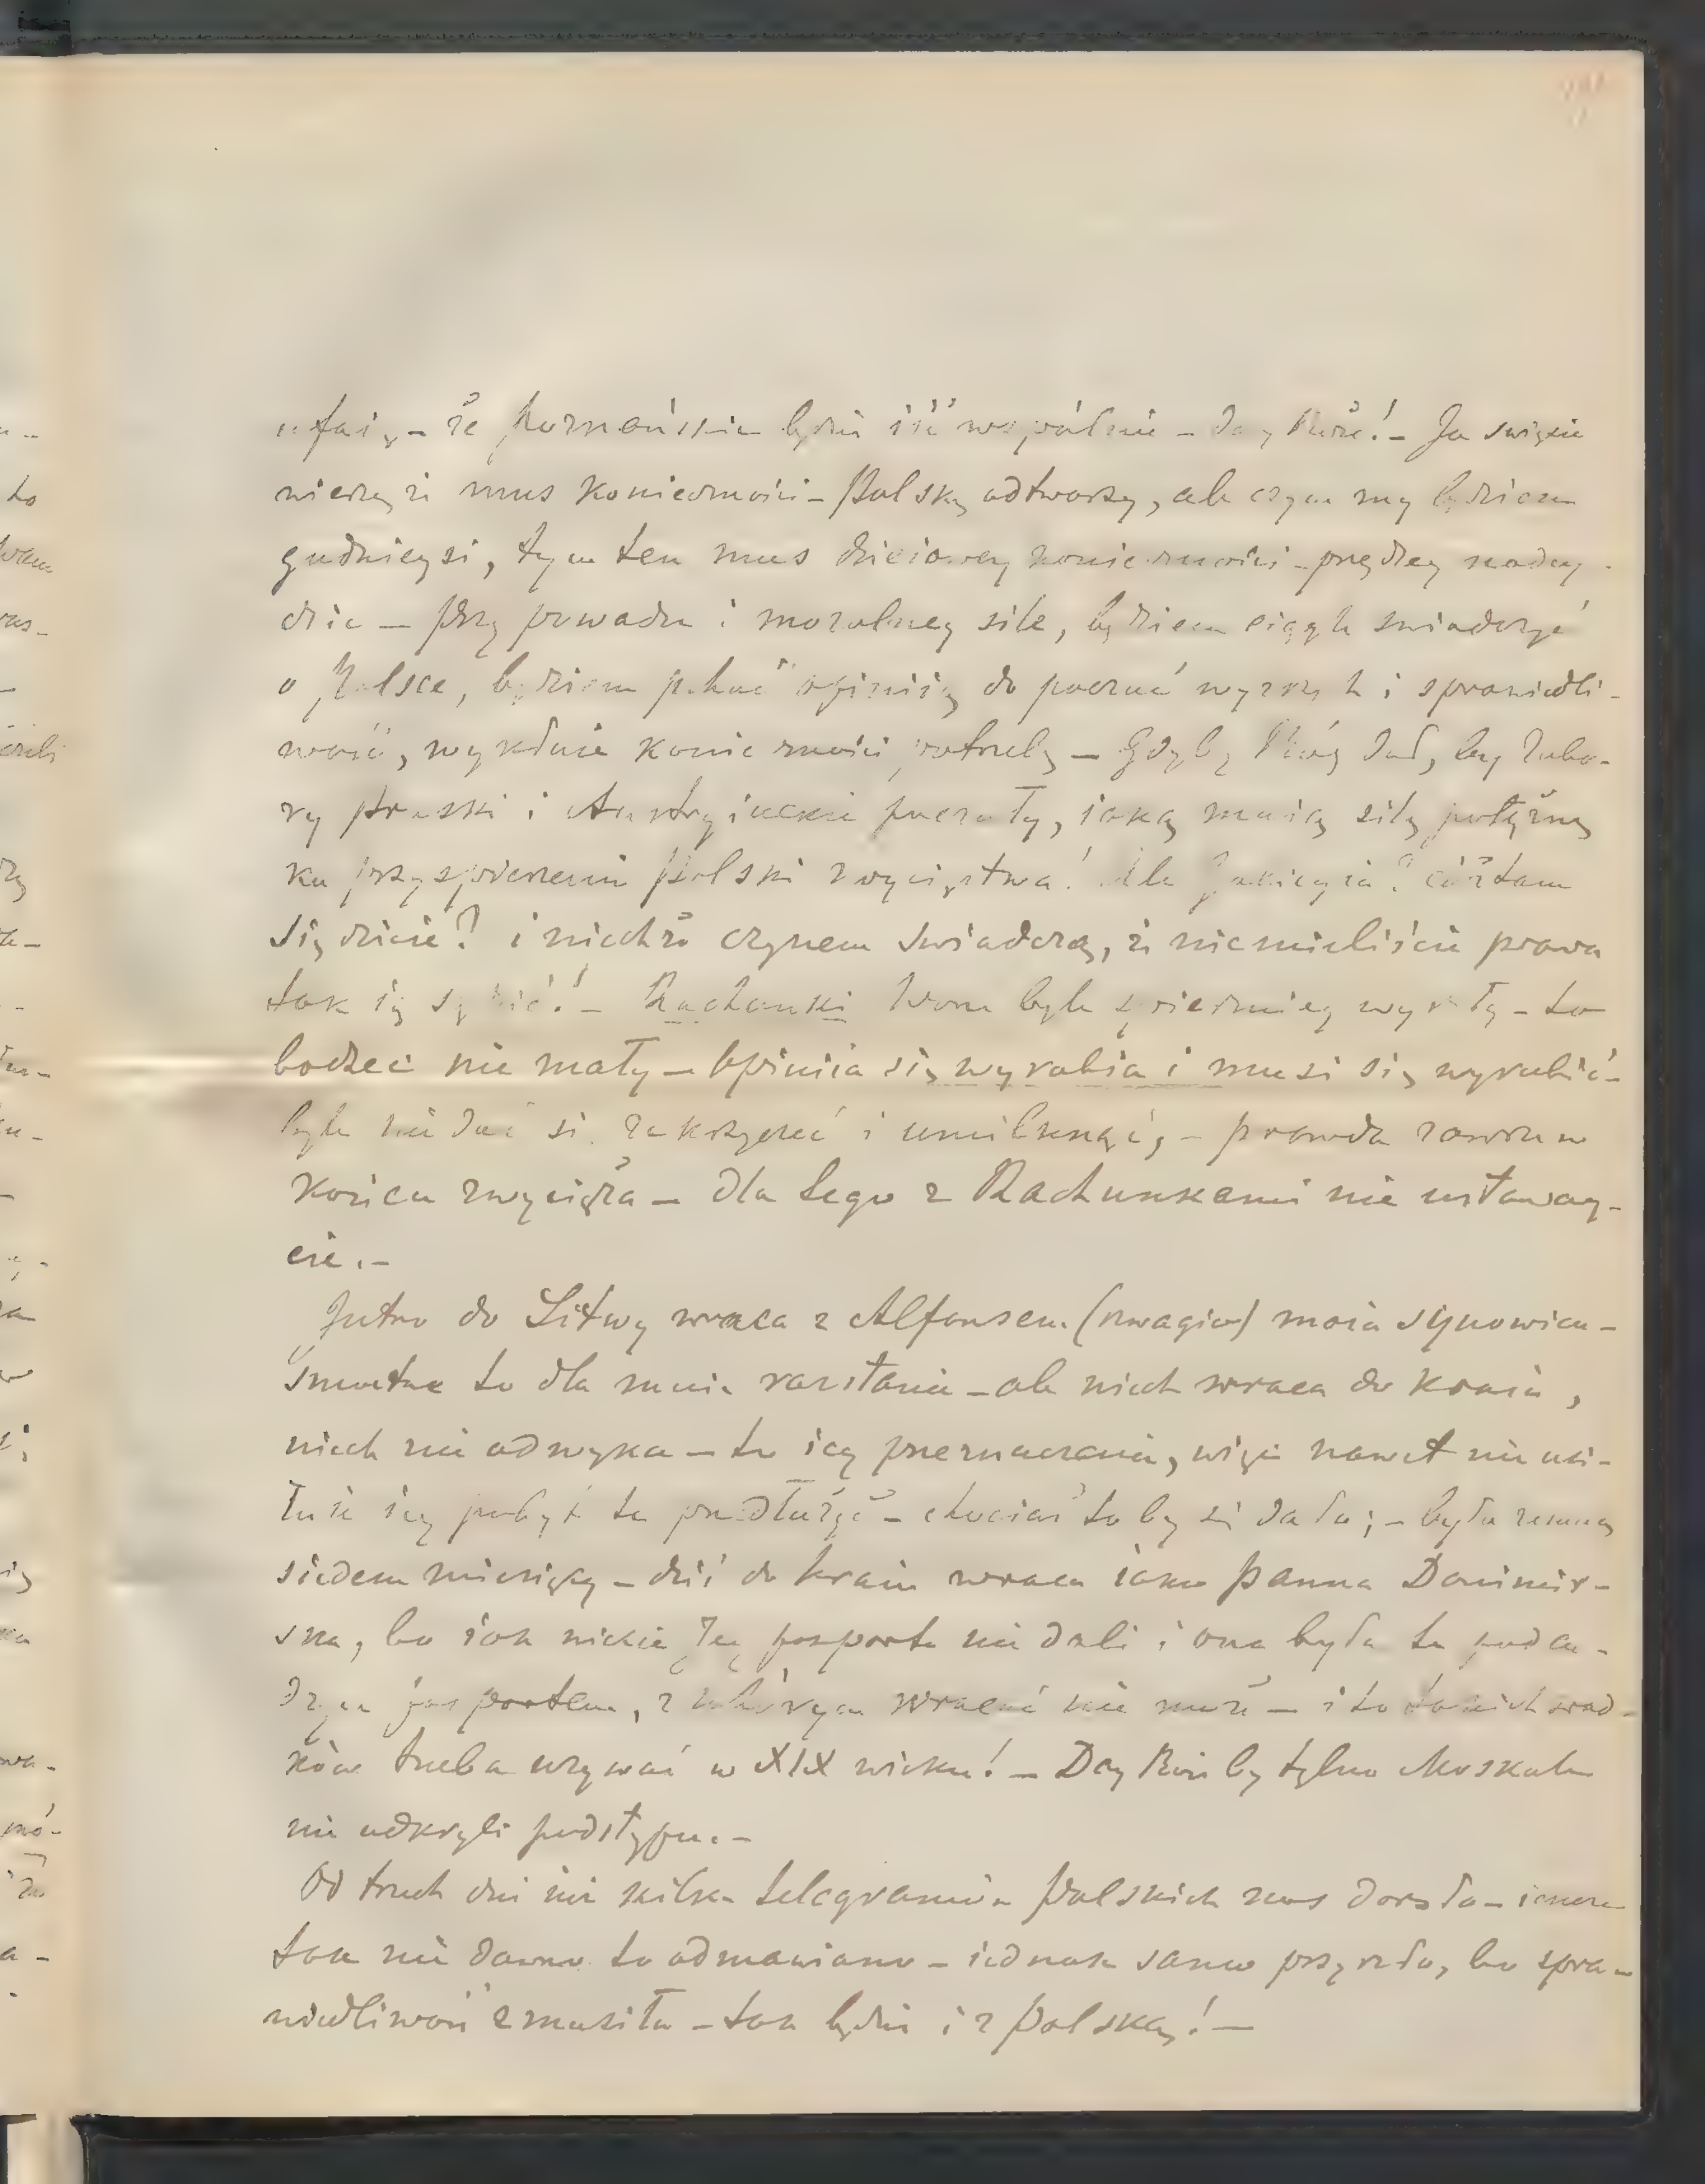 ufaią – że poznańskie będzie iść wspólnie – Day Boże! – Ja święcie
wierzę że mus konieczności – Polskę odtworzy, ale czym my będziem
godnieysi, tym ten mus dzieiowey konieczności – prędzey nadey-
dzie – Przy powadze i moralney sile, będziem ciągle świadczyć
o Polsce, będziem pchać opiniią do poczuć wyższych i sprawiedli-
wość, wykaże konieczności potrzeby – Gdyby Bóg dał, by Zabo-
ry Pruski i Austryiackie poczuły, iaką maią siłę potężną
ku przyspieszeniu Polski zwycięstwa! Ale cóż tam
się dzieie? i niechże czynem świadczą, że nie mieliście prawa
tak ią sądzić! – Rachunki Wasze były wyszły – to
bodziec nie mały – Opiniia się wyrabia i musi się wyrobić –
byle nie dać się zakrzyczeć i umilknąć, – prawda zawsze w
końcu zwycięża – dla tego z Rachunkami nie ustaway-
cie. –
Jutro do Litwy wraca z Alfonsem (szwagier) moia synowica –
smutne to dla mnie rozstanie – ale niech wraca do kraiu,
niech nie odwyka – to iey przeznaczenie, więc nawet nie usi-
łuię iey pobyt tu przedłużyć – chociaż to by się dało; – była zemną
siedem miesięcy – dziś do kraiu wraca iako Panna Domimir-
ska, bo iak wiecie Jey paszportu nie dali i ona była tu pod cu-
dzym paszportem, z którym wracać nie może – i to takich środ-
ków trzeba używać w XIX wieku! – Day Boże by tylko Moskale
nie odkryli podstępu. –
Od trzech dni iuż kilka telegramów Polskich nas doszło – ieszcze
tak nie dawno to odmawiano – iednak samo przyszło, bo spra-
wiedliwość zmusiła – tak będzie i z Polską! –